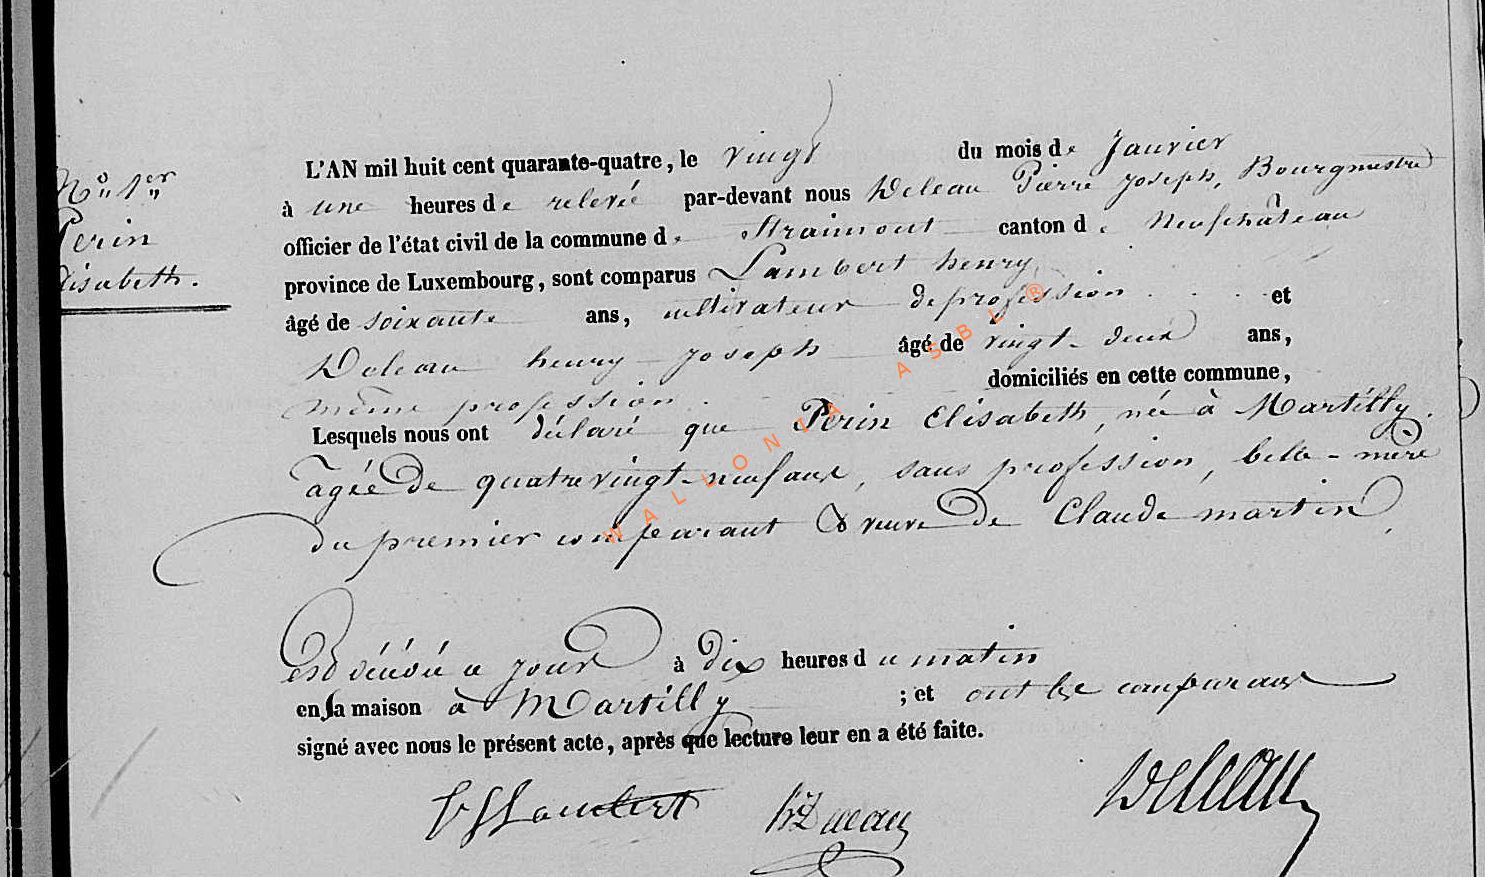 N° 1er
Perin
Elisabeth.
L'AN mil huit cent quarante-quatre, le vingt du mois de Janvier
à une heures de relevé par-devant nous Deleau Pierre Joseph, Bourgmestre
officier de l'état civil de la commune de Straimont canton de Neufchâteau
province de Luxembourg, sont comparus Lambert henry
âgé de soixante ans, cultivateur de profession et
Deleau henry Joseph âgé de vingt-deux ans,
même profession. domiciliés en cette commune,
Lesquels nous ont déclaré que Perin Elisabeth, née à Martilly.
agée de quatre vingt-neuf ans, sans profession, belle-mère
du premier comparant & veuve de Claude martin,
est décédé ce jour à dix heures du matin
en sa maison à Martilly ; et ont les comparans
signé avec nous le présent acte, après que lecture leur en a été faite.
Lambert Deleau Deleau
WALLONIA ASBL ®